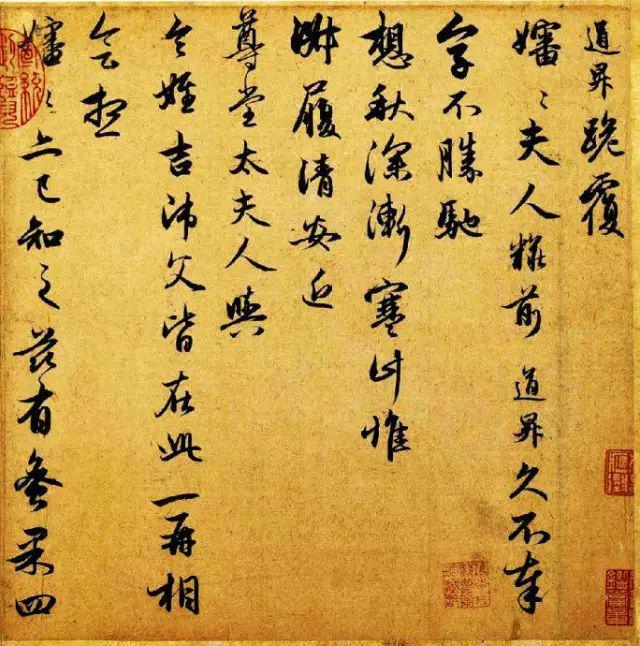 道昇跪覆
嬸々夫人粧前 道昇久不奉
字不勝馳
想秋深漸寒計惟
淑履清安近
尊堂太夫人與
令姪吉師父皆在此一再相
會想
嬸々亦已知之茲有蜜果四